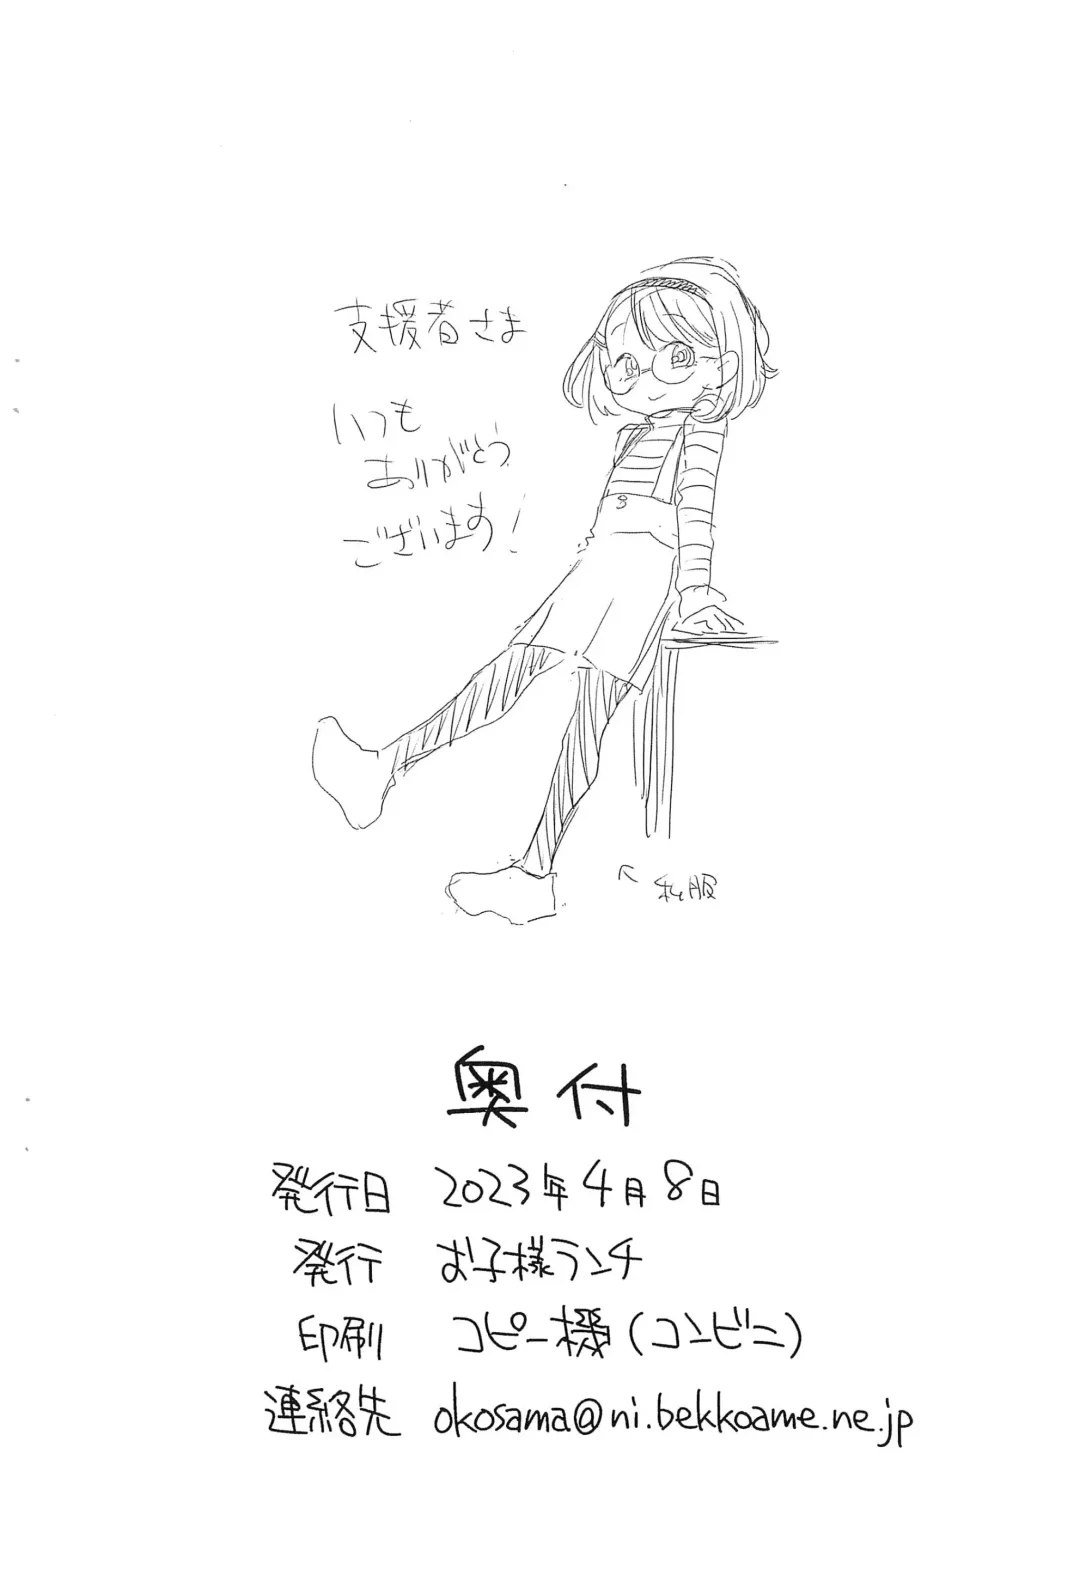 支援者さま
いつも
ありがとう
ございます!
↖ 私服
奥付
発行日 2023年4月8日
発行 お子様ランチ
印刷 コピー機(コンビニ)
連絡先 okosama@ni.bekkoame.ne.jp